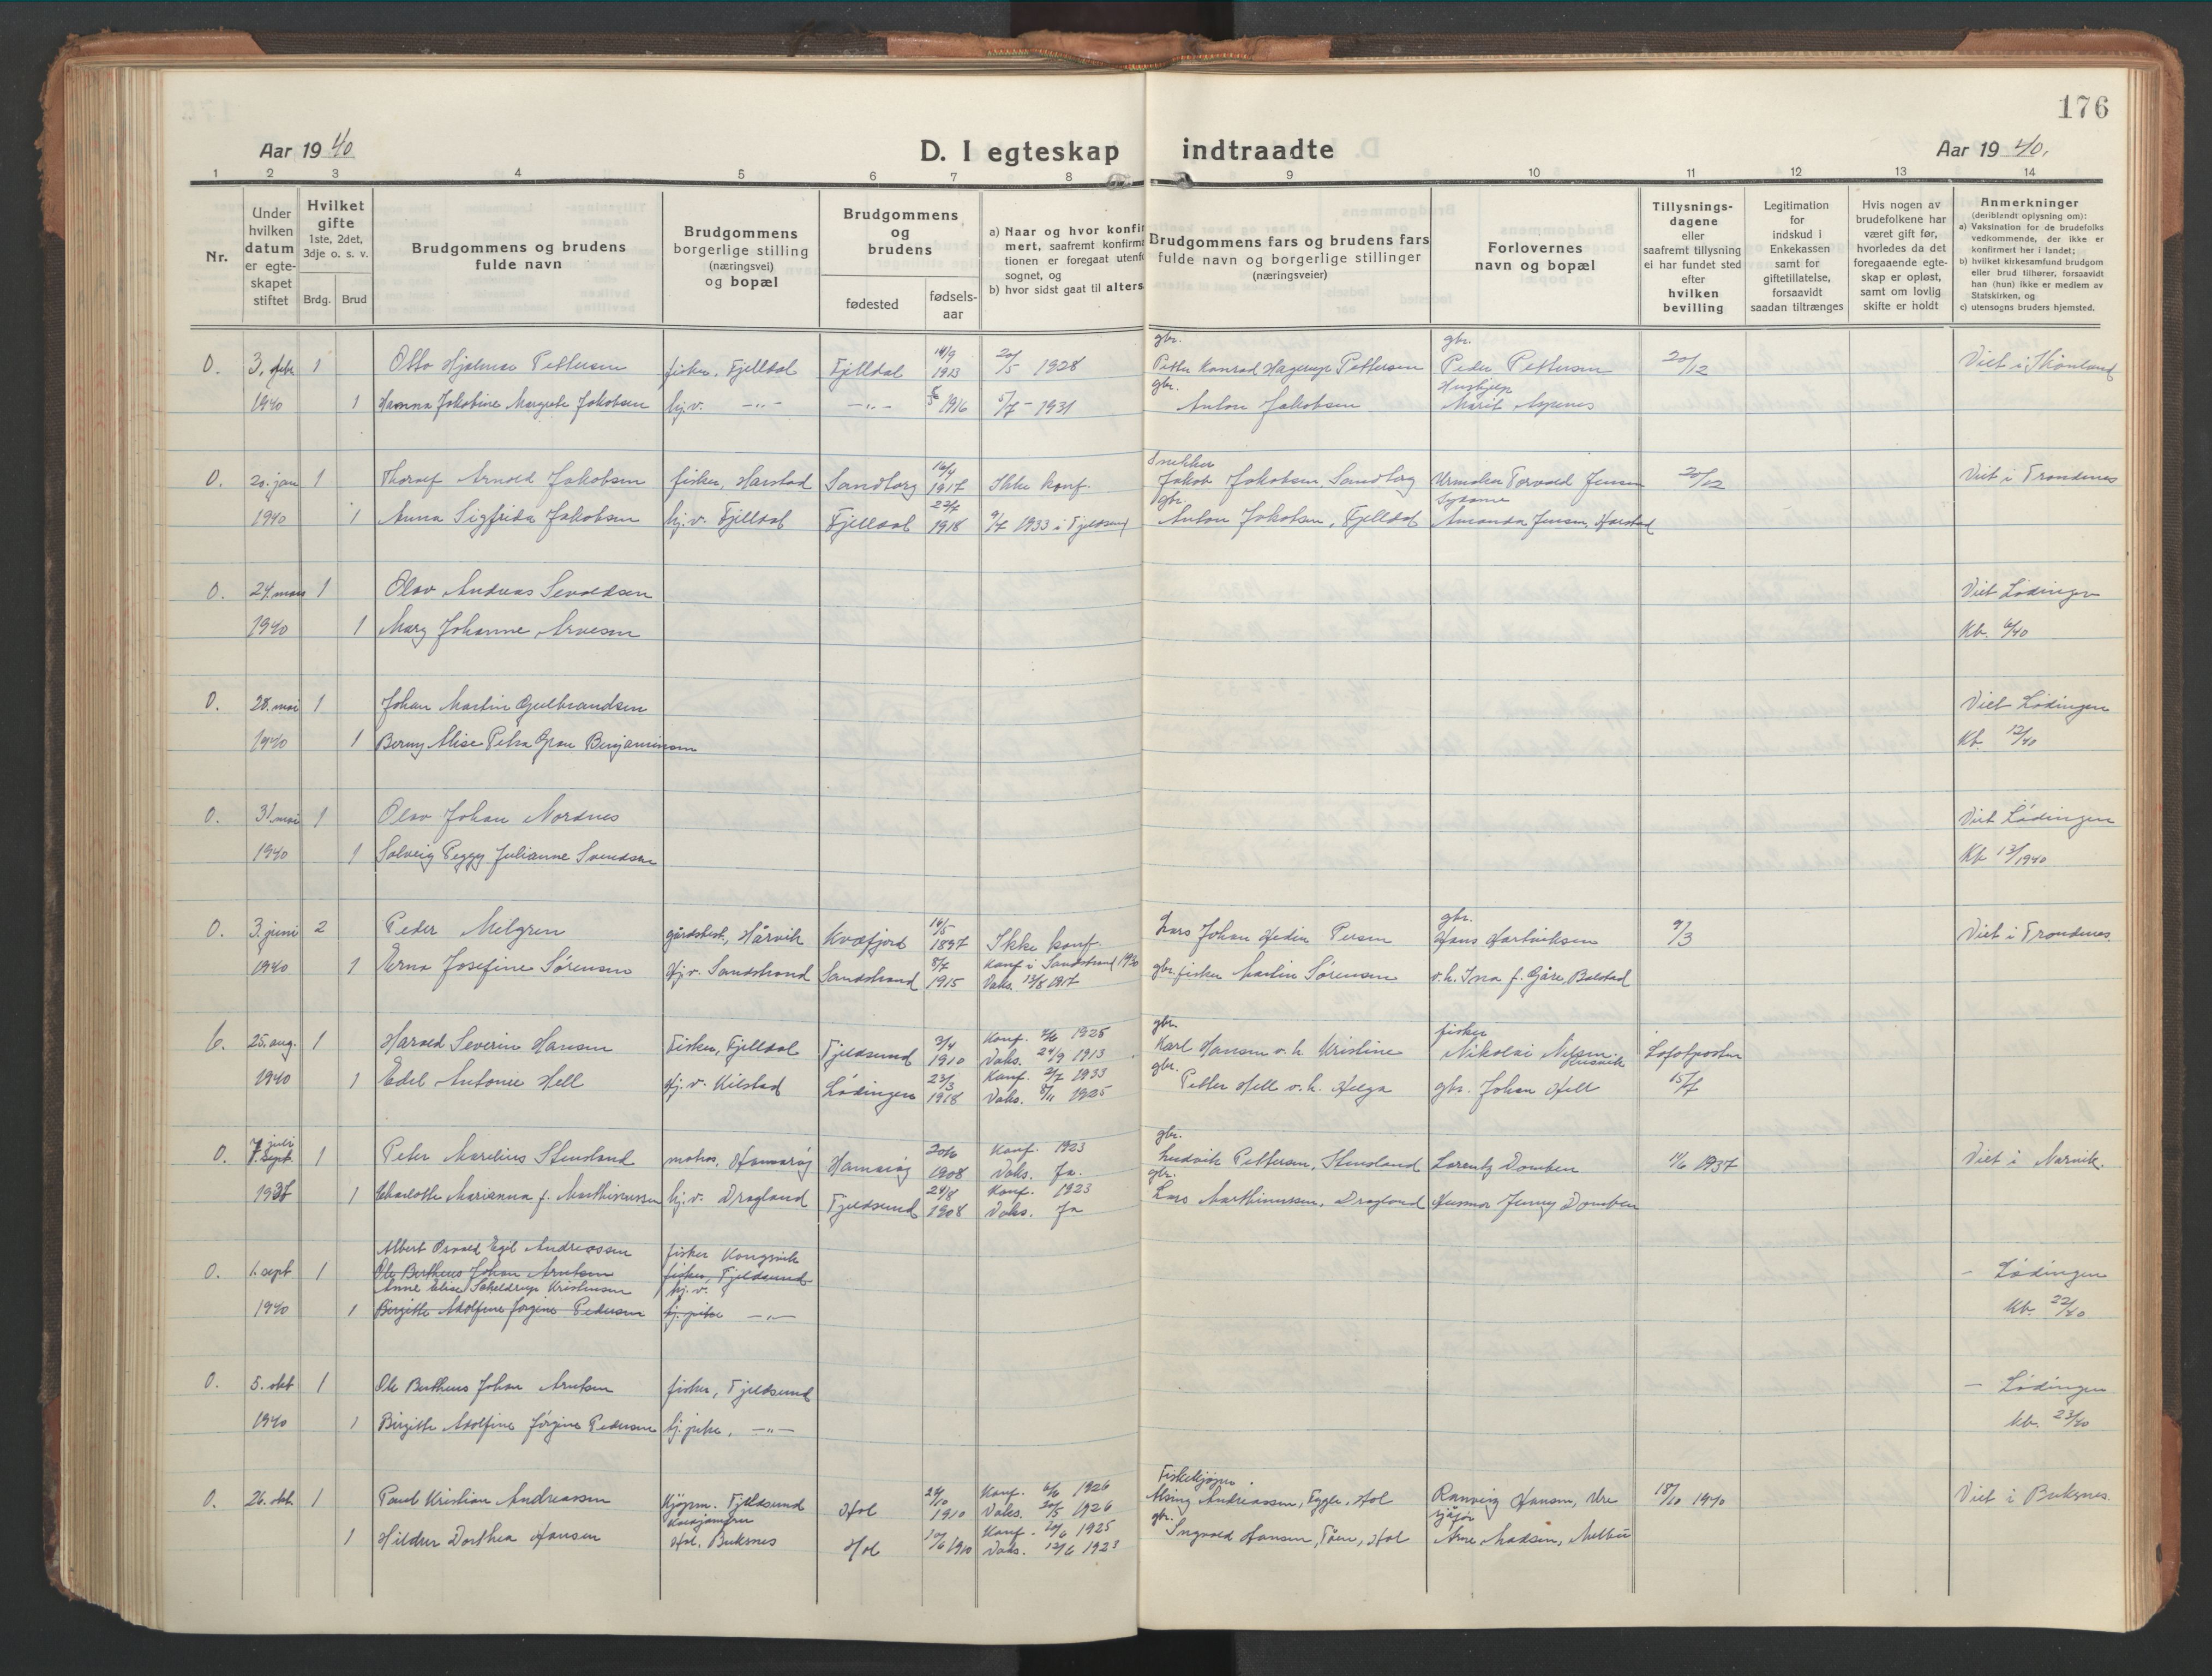 176
Aar 19 40
D. I egteskap indtraadte
Aar 19 40.
1 2 3 4 5 6 7 8 9 10 11 12 13 14
Nr.
Under
hvilken
datum
er egte-
skapet
stiftet
Hvilket
gifte
1ste, 2det,
3dje o. s. v.
Brdg. Brud
Brudgommens og brudens
fulde navn
Brudgommens
borgerlige stilling
(næringsvei)
og bopæl
Brudgommens
og
brudens
fødested
fødsels-
aar
a) Naar og hvor konfir
mert, saafremt konfirma
tionen er foregaat utenfo
sognet, og
b) hvor sidst gaat til alters
Brudgommens fars og brudens fars
fulde navn og borgerlige stillinger
(næringsveier)
Forlovernes
navn og bopæl
Tillysnings-
dagene
eller
saafremt tillysning
ei har fundet sted
efter
hvilken
bevilling
Legitimation
for
indskud i
Enkekassen
samt for
giftetillatelse,
forsaavidt
saadan tiltrænges
Hvis nogen av
brudefolkene har
været gift før,
hvorledes da det
foregaaende egte-
skap er opløst,
samt om lovlig
skifte er holdt
Anmerkninger
(deriblandt oplysning om):
a) Vaksination for de brudefolks
vedkommende, der ikke er
konfirmert her i landet;
b) hvilket kirkesamfund brudgom
eller brud tilhører, forsaavidt
han (hun) ikke er medlem av
Statskirken, og
c) utensogns bruders hjemsted.
gbr. gbr.
0. 3. feb 1 Otto Hjalmar Pettersen fisker, Fjelldal Fjelldal 14/9 1913 20/5 1928 Petter Konrad Hagerup Pettersen Peder Pettersen 20/12 Viet i Skånland
gbr. Hushjelp
1940 1 Hanna Jakobine Margrete Jakobsen hj.v. —"— —"— 1916 5/7 - 1931 Anton Jakobsen Marit Aspenes
Snekker
0. 20. jan 1 Thoralf Arnold Jakobsen fisker, Harstad Sandtorg 16/4 1917 Ikke konf. Jakob Jakobsen, Sandtorg Urmaker Torvald Jensen 20/12 Viet i Trondenes
gbr. Sydame
1940 1 Anna Sigfrida Jakobsen hj.v. Fjelldal Fjelldal 22/7 1918 9/7 1933 i Fjeldsund Anton Jakobsen, Fjelldal Amanda Jensen, Harstad
0. 24. mars 1 Olav Andreas Sevaldsen Viet Lødingen
1940 1 Mary Johanne Arnesen Kb. 6/40
0. 28. mai 1 Johan Martin Gulbrandsen Viet Lødingen
1940 1 Berny Alise Petra Gran Benjaminsen Kb. 12/40
0. 31. mai 1 Olav Johan Nordnes Viet Lødingen
1940 1 Solveig Peggy Julianne Svendsen Kb 13/1940
gbr.
0. 3. juni 2 Peder Melgren gårdsbest., Hårvik Kvæfjord 16/5 1897 Ikke konf. Lars Johan Hedin Persen Hans Hartviksen 9/3 Viet i Trondenes
1940 1 Erna Josefine Sørensen Hj.v. Sandstrand Sandstrand 8/7 1915 Konf i Sandstrand 1930
Vaks. 13/8 1917 gbr. fisker Martin Sørensen v.h. Ina f. Gåre, Balstad
gbr. fisker
6. 25. aug. 1 Harald Severin Hansen Fisker, Fjelldal Fjeldsund 2/4 1910 Konf. 7/6 1925
Vaks. 24/9 1913 Karl Hansen v. h. Kristine Nikolai Nilsen Husvik Lofotposten
gbr.
1940 1 Edel Antonie Hell Hj. v. Kilstad Lødingen 23/3 1918 Konf. 2/7 1933
Vaks. 8/11 1925 Petter Hell v. h. Helga gbr. Johan Hell 15/7
gbr.
0. 7. juli sept. 1 Peter Marelius Stensland matros, Hamarøy Hamarøy 20/6 1908 Konf. 1923
Vaks. Ja. Ludvik Pettersen, Stensland Lorentz Domben 11/6 1937 Viet i Narvik.
gbr.
1937 1 Charlotte Marianna f. Marthinussen hj. v. Dragland Fjeldsund 24/8 1908 Konf. 1923
Vaks. Ja Lars Marthinussen, Dragland Husmor Jenny Domben
Albert Osvald Egil Andreassen fisker Kongsvik
0. 1. sept 1 Ole Bertheus Johan Arntsen fisker, Fjeldsund — Lødingen
Anne Elise Sakeldrup Kristensen hj. v.
1940 1 Birgitte Adolfine Jørgine Pedersen hj. pike —"— Kb. 22/40
0. 5. okt 1 Ole Bertheus Johan Arntsen fisker, Fjeldsund — Lødingen
1940 1 Birgitte Adolfine Jørgine Pedersen hj. pike, —"— Kb. 23/40
Fiskekjøper.
0. 26. okt. 1 Paul Kristian Andreassen Kjøpm. Fjeldsund Hol 1910 Konf. 6/6 1926
Vaks. 20/5 1926 Alsing Andreassen, Eggen, Hol Ranveig Hansen, Ure 18/10 1940 Viet i Buksnes.
gbr. sjåfør
1 Hildur Dorthea Hansen Hol, Buksnes Hol 1910 Konf. 20/6 1925
Vaks. 12/6 1923 Ingvald Hansen, Tåen, Hol Arne Madsen, Melbu